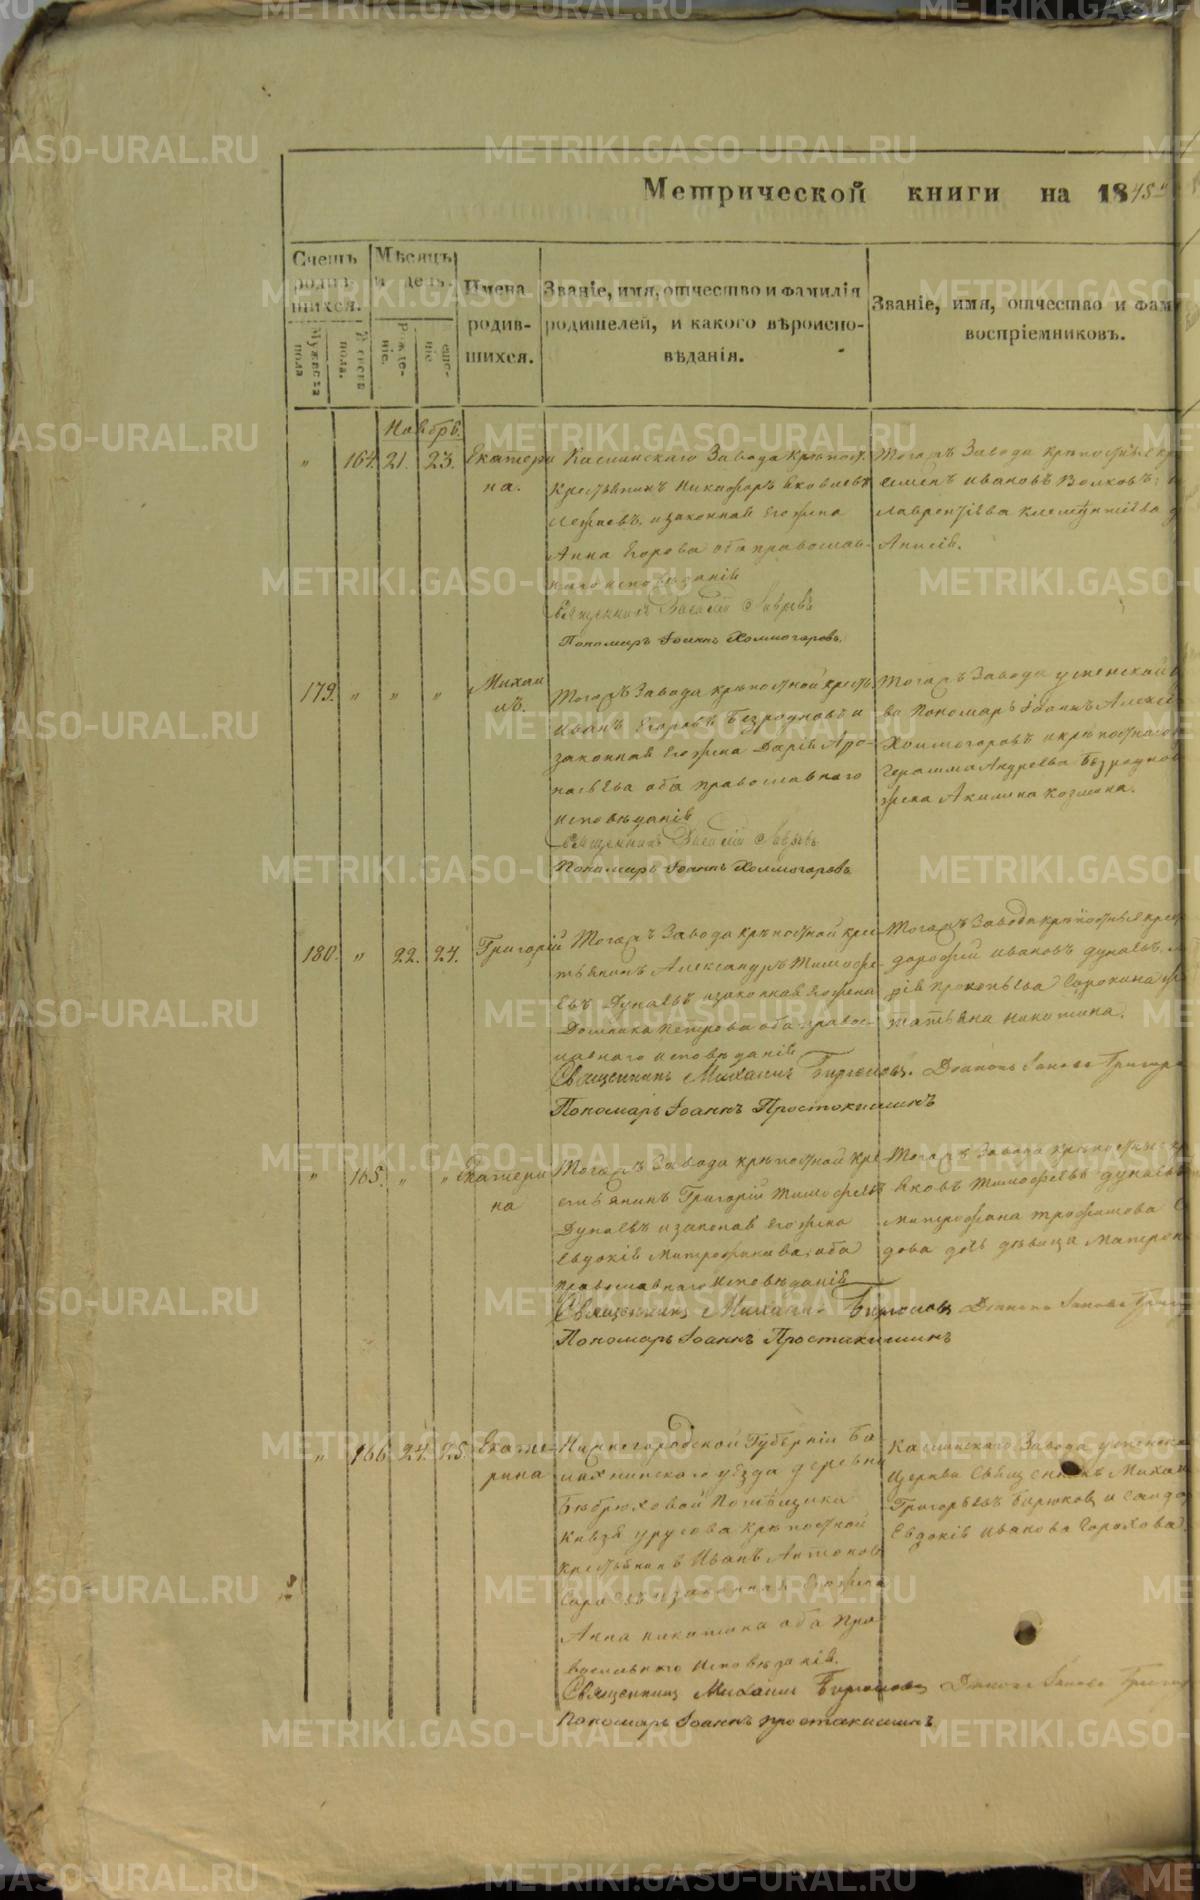 Метрической книги на 1845
Счетъ родившихся.
Мѣсяцъ и день.
Имена родившихся.
Званіе, имя, отчество и фамилія
родителей, и какого вѣроиспо-
вѣданія.
Званіе, имя, отчество и фам
воспріемниковъ.
Мужеска пола
Женска пола.
Рожде-
ніе.
Ноябрь.
" 164. 21. 23. Екатери
на.
Каслинскаго Завода крѣпост.
крестьянинъ Никифоръ Яковлевъ
и законная его жена
Анна Егорова оба православ-
наго исповѣданія
Священникъ Василій
Пономарь Іоаннъ Холмогоровъ.
Тогожъ Завода крѣпостные кр
Семенъ Ивановъ Волковъ;
Лаврентіева Клементіева д
Анисія.
179. " " " Михаи
лъ.
Тогожъ Завода крѣпостной кресть
Иванъ Егоровъ Безродновъ и
законная его жена Дарія Афо-
насьева оба православнаго
исповѣданія
Священникъ Василій
Пономарь Іоаннъ Холмогоровъ
Тогожъ Завода Успенской
ва Пономарь Іоаннъ Алексѣ
Холмогоровъ и крѣпостнаго
Герасима Андреева Безроднов
жена Акилина Козмина.
180. " 22. 24. Григорій
Тогожъ Завода крѣпостной крес
тьянинъ Александръ Тимофе-
евъ Дунаевъ и законная его жена
Домника Петрова оба правос-
лавнаго исповѣданія
Священникъ Михаилъ Бирюковъ. Діаконъ Іаковъ Григор
Пономарь Іоаннъ Простокишинъ
Тогожъ Завода крѣпостные крест
Дорофей Ивановъ Дунаевъ.
рія Прокопьева Сорокина ж
Татьяна Никитина.
" 165. " " Екатери
на
Тогожъ Завода крѣпостной кре
стьянинъ Григорій Тимофеевъ
Дунаевъ и законая его жена
Евдокія Митрофанова, оба
православнаго исповѣданія
Священникъ Михаилъ Бирюковъ Діаконъ Іаковъ Григор
Пономарь Іоаннъ Простакишинъ
Тогожъ Завода крѣпостные кр
Яковъ Тимофеевъ Дунаевъ
Митрофана Трофимова
дова дочь дѣвица Матрон
" 166. 24. 25. Екате-
рина
Нижегородской Губерніи Ба
лахнинскаго уѣзда деревни
Помѣщика
Князя Урусова крѣпостной
крестьянинъ Иванъ Антоновъ
и законная его жена
Анна Никитина оба пра
вославнаго исповѣданія.
Священникъ Михаилъ Бирюковъ Діаконъ Іаковъ Григор
Пономарь Іоаннъ Простакишинъ
Каслинскаго Завода Успенск
Церкви Священникъ Михаи
Григорьевъ Бирюковъ и
Евдокія Иванова Горохова.
METRIKI.GASO-URAL.RU